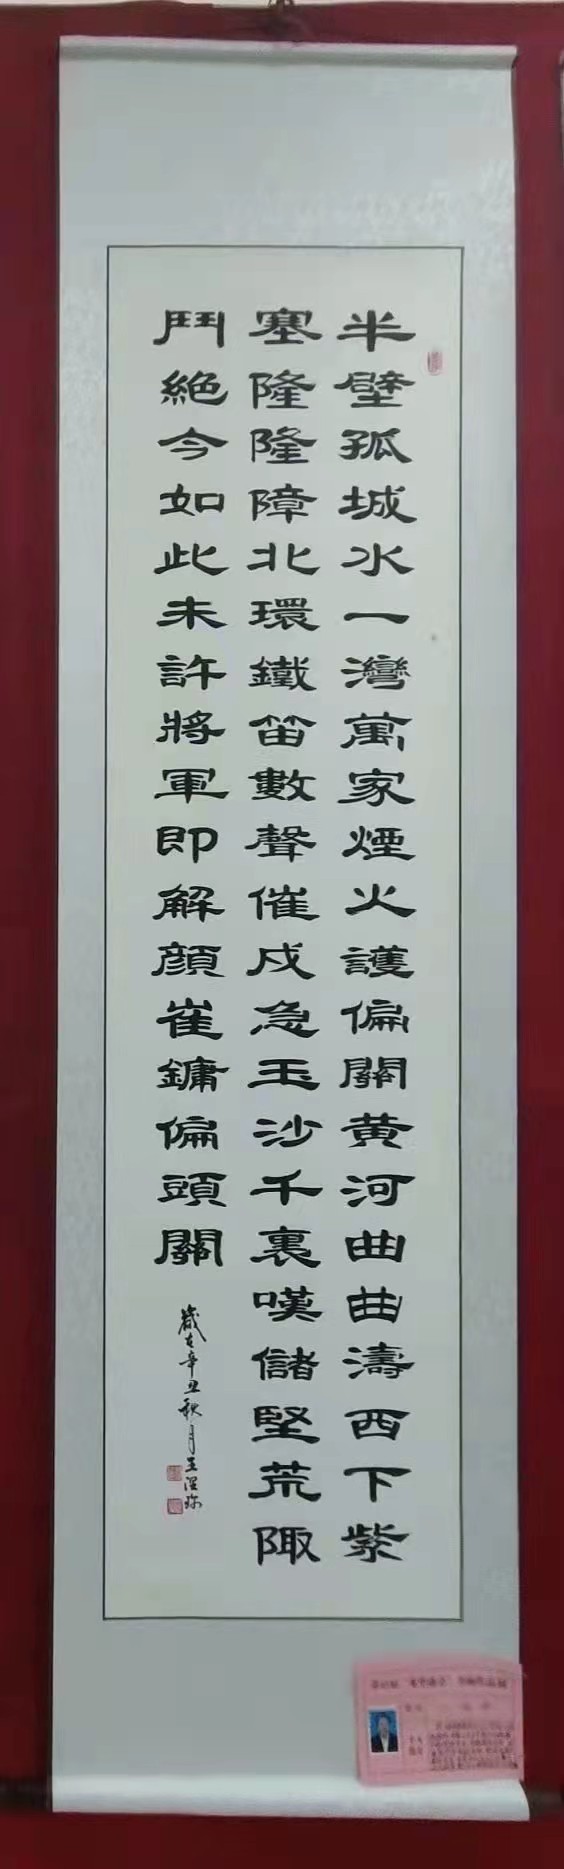 半壁孤城水一灣萬家煙火護偏關黃河曲曲濤西下紫
塞隆隆障北環鐵笛數聲催戍急玉沙千裏嘆儲堅荒陬
鬥絕今如此未許將軍即解顏崔鏞偏頭關
歲在辛丑秋月王